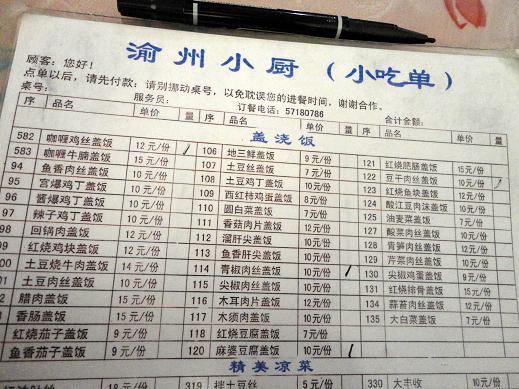 渝州小厨（小吃单）
顾客：您好！
点单以后，请先付款；请别挪动桌号，以免耽误您的进餐时间，谢谢合作。
桌号： 服务员： 订餐电话：57180786 合计金额：
序 品名 单价 量 序 品名 单价 量 序 品名 单价 量
盖浇饭
582 咖喱鸡丝盖饭 12元/份 106 地三鲜盖饭 9元/份 121 红烧肥肠盖饭 15元/份
583 咖喱牛腩盖饭 15元/份 107 土豆丝盖饭 7元/份 122 豆干肉丝盖饭 10元/份
94 鱼香肉丝盖饭 10元/份 108 土豆鸡丁盖饭 10元/份 123 红烧鱼块盖饭 12元/份
95 宫爆鸡丁盖饭 10元/份 109 西红柿鸡蛋盖饭 8元/份 124 酸豇豆肉沫盖饭 10元/份
96 酱爆鸡丁盖饭 10元/份 110 圆白菜盖饭 7元/份 125 油麦菜盖饭 7元/份
97 辣子鸡丁盖饭 10元/份 111 香菇肉片盖饭 12元/份 127 酸菜肉丝盖饭 10元/份
98 回锅肉盖饭 12元/份 112 溜肝尖盖饭 10元/份 128 青笋肉丝盖饭 10元/份
99 红烧鸡块盖饭 12元/份 113 鱼香肝尖盖饭 10元/份 129 芹菜肉丝盖饭 10元/份
100 土豆烧牛肉盖饭 14元/份 114 青椒肉丝盖饭 10元/份 130 尖椒鸡蛋盖饭 9元/份
土豆肉丝盖饭 10元/份 115 尖椒肉丝盖饭 10元/份 131 红烧排骨盖饭 15元/份
腊肉盖饭 15元/份 116 木耳肉片盖饭 12元/份 134 蒜苔肉丝盖饭 12元/份
香肠盖饭 15元/份 117 木须肉盖饭 10元/份 135 大白菜盖饭 7元/份
红烧茄子盖饭 9元/份 118 红烧豆腐盖饭 7元/份
鱼香茄子盖饭 9元/份 120 麻婆豆腐盖饭 10元/份
精美凉菜
319 拌土豆丝 5元/份 330 大丰收 10元/份